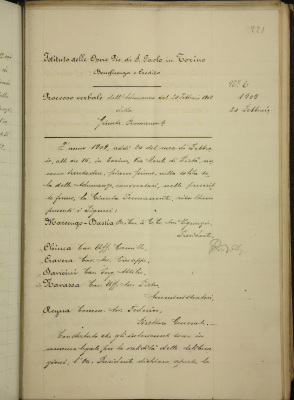 221
Istituto delle Opere Pie di S. Paolo in Torino
Beneficenza e Credito
N. 6
Processo verbale dell'Adunanza del 20 Febbraio 1908
1908
della
20 Febbraio
Giunta Permanente
L'anno 1908, addì 20 del mese di Febbra-
io, alle ore 16, in Torino, Via Monte di Pietà, nu-
mero trentadue, piano primo, nella solita sa-
la delle adunanze, convocatasi, nelle prescrit-
te forme, la Giunta Permanente, sono
presenti i Signori:
Marengo-Bastia
Presidente
Cav. Uff. Camillo
Cravera Cav. Avv. Giuseppe
Cav. Ing. Attilio
Ravassa Cav. Uff. Avv. Pietro
Amministratori
Reyna Comm. Avv. Federico
Direttore Generale.
Constatato che gli intervenuti sono in
numero legale per la validità delle delibera-
zioni, l'On. Presidente dichiara aperta la